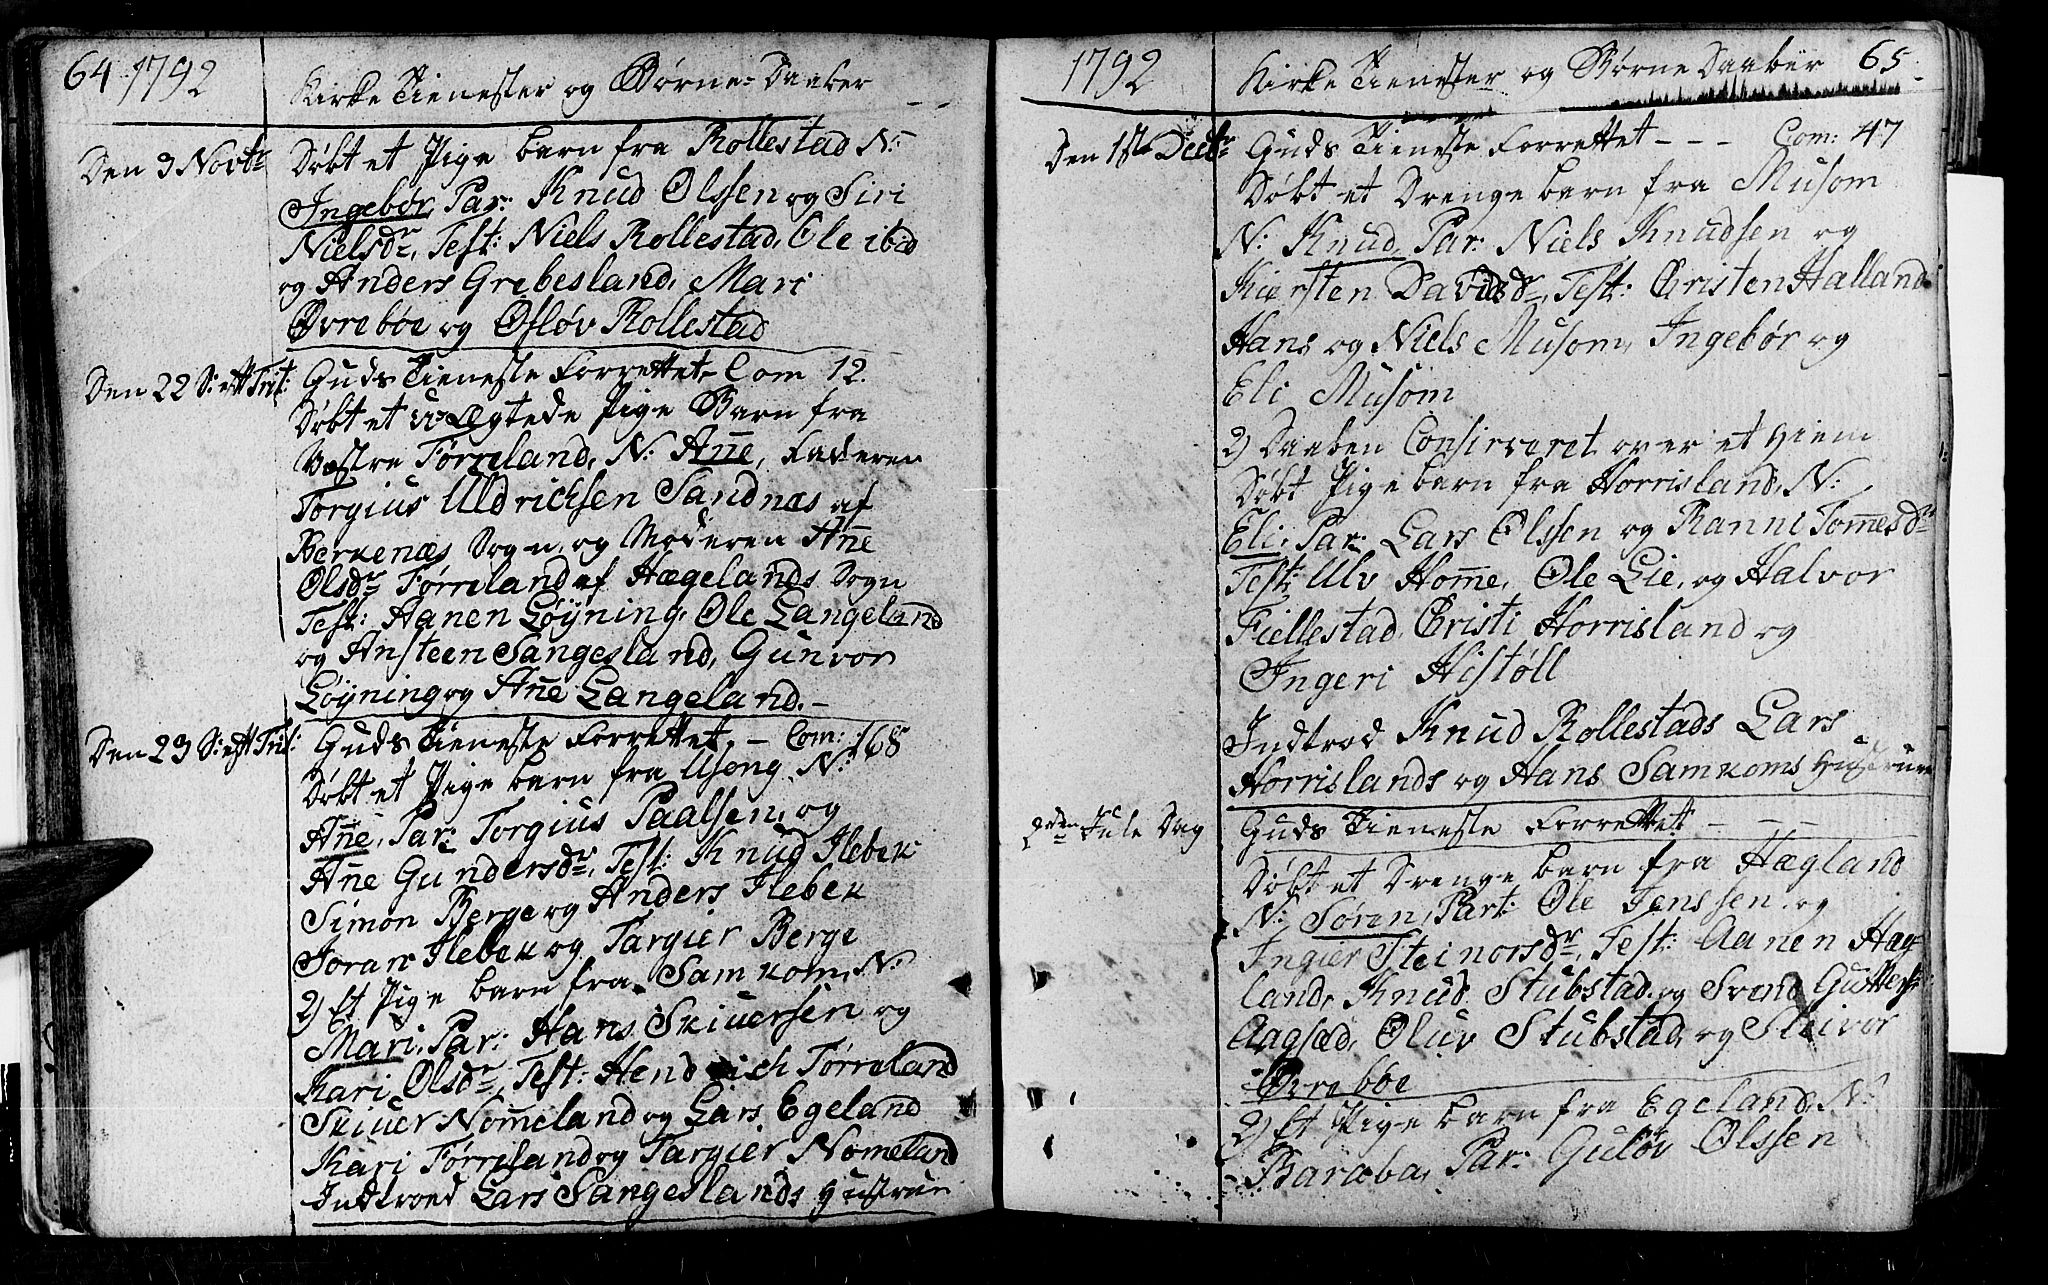 64 1792
Kirke Tienester og Børne-Daaber
Den 3 Novbr
Døbt et Pige barn fra Rollestad N:
Ingebør, Par: Knud Olssen og Siri
Nielsdr, Test: Niels Rollestad, Ole ibid
og Anders Grebesland, Mari
Øvrebøe og Osløv Rollestad
Den 22 S: eft Trit:
Guds Tieneste Forrettet Com 12.
Døbt et u-Ægtede Pige Barn fra
Vestre Førreland, N: Añe, Faderen
Torgius Uldrichsen Sandnæs af
Berkenæs Sogn, og Moderen Añe
Olsdr Førreland af Hægelands Sogn
Test: Aanen Løyning, Ole Langeland
og Ansteen Sangesland, Gunvor
Løyning og Añe Langeland.-
Den 23 S: eft Trit:
Guds Tieneste Forrettet, - Com: 168
Døbt et Pige barn fra Usong N:
Añe, Par: Torgius Paalsen, og
Añe Gundersdr, Test: Knud Ilebek
Simon Berge og Anders Ilebek
Joran Ilebek og Targier Berge
2) Et Pige barn fra Samkom, N:
Mari, Par: Hans Skiversen og
Kari Olsdr, Test: Hendrich Førreland
Skiuer Nom̄eland og Lars Egeland
Kari Førreland og Targier Nomeland
Indtroed Lars Sangeslands Hustrue
1792
Kirke Tienester og Børne Daaber 65
Den 1ste Decbr
Guds Tieneste Forrettet - - - Com: 47
Døbt et Drenge barn fra Musom
N: Knud, Par: Niels Knudsen og
Kiersten Davidsdr, Test: Christen Halland
Hans og Niels Musom, Ingebør og
Eli Musom
2) Daaben Consirveret over et Hiem
Døbt Pige barn fra Horrisland, N:
Eli, Par: Lars Olssen og Ranni Tom̄esdr
Test: Ulv Hom̄e, Ole Lie, og Halvor
Fiellestad, Christi Horrisland og
Ingeri Histøll
Indtrod Knud Rollestads Lars
Horrislands og Hans Samkoms Hustruer
2den Jule Dag
Guds Tieneste Forrettet - - -
Døbt et Drenge barn fra Hægland
N: Søren, Part: Ole Jenssen og
Ingier Steinorsdr, Test: Aanen Hæg-
land, Knud Stubstad og Svend Gutters:
Aagsæd, Oluv Stubstad, og Sleivor
Øvrebøe
2) Et Pige barn fra Egeland, N:
Baraba, Par: Guløv Olssen